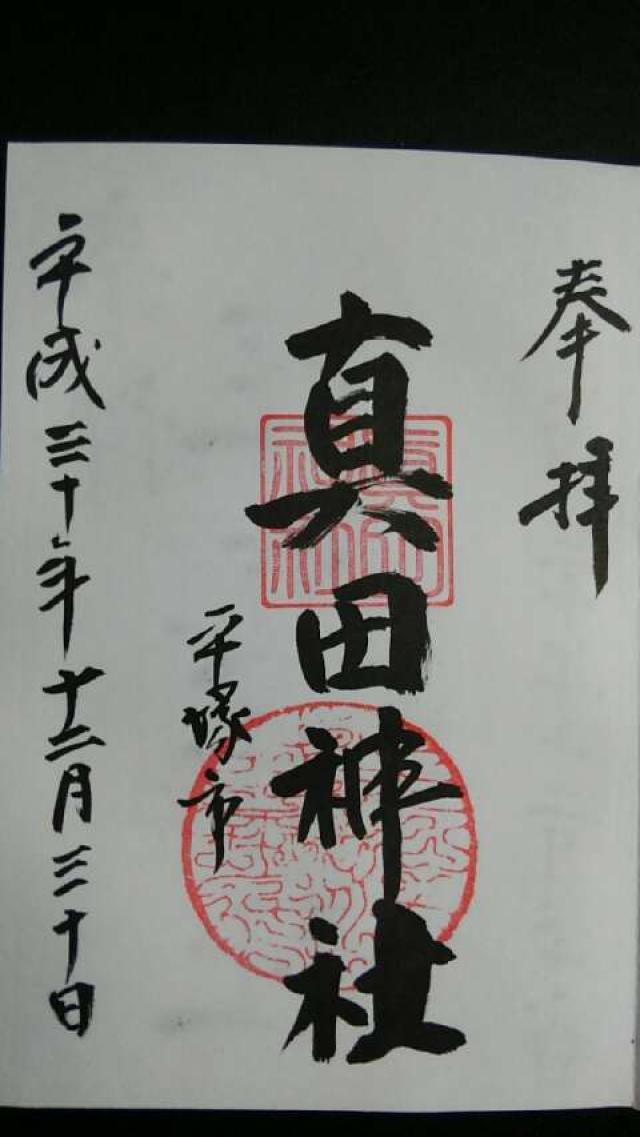 奉拝
真田神社
平塚市
平成三十年十二月三十日